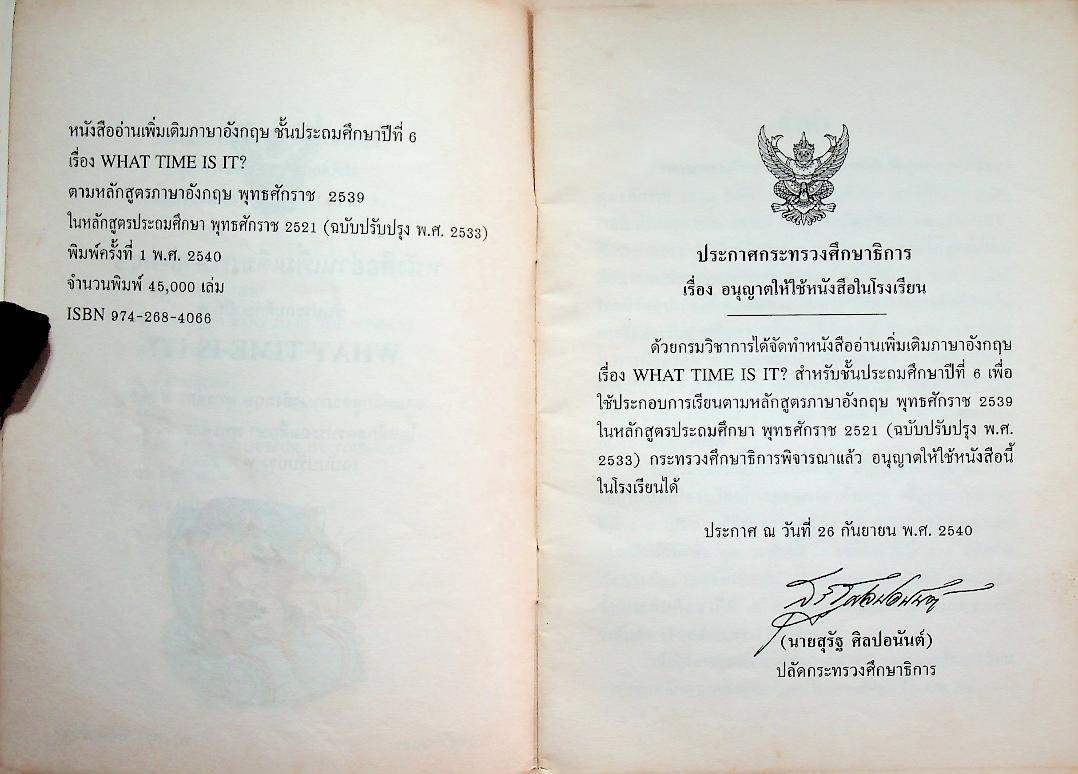 หนังสืออ่านเพิ่มเติมภาษาอังกฤษ ชั้นประถมศึกษาปีที่ 6
เรื่อง WHAT TIME IS IT?
ตามหลักสูตรภาษาอังกฤษ พุทธศักราช 2539
ในหลักสูตรประถมศึกษา พุทธศักราช 2521 (ฉบับปรับปรุง พ.ศ. 2533)
พิมพ์ครั้งที่ 1 พ.ศ. 2540
จำนวนพิมพ์ 45,000 เล่ม
ISBN 974-268-4066
ประกาศกระทรวงศึกษาธิการ
เรื่อง อนุญาตให้ใช้หนังสือในโรงเรียน
ด้วยกรมวิชาการได้จัดทำหนังสืออ่านเพิ่มเติมภาษาอังกฤษ
เรื่อง WHAT TIME IS IT? สำหรับชั้นประถมศึกษาปีที่ 6 เพื่อ
ใช้ประกอบการเรียนตามหลักสูตรภาษาอังกฤษ พุทธศักราช 2539
ในหลักสูตรประถมศึกษา พุทธศักราช 2521 (ฉบับปรับปรุง พ.ศ.
2533) กระทรวงศึกษาธิการพิจารณาแล้ว อนุญาตให้ใช้หนังสือนี้
ในโรงเรียนได้
ประกาศ ณ วันที่ 26 กันยายน พ.ศ. 2540
(นายสุรัฐ ศิลปอนันต์)
ปลัดกระทรวงศึกษาธิการ